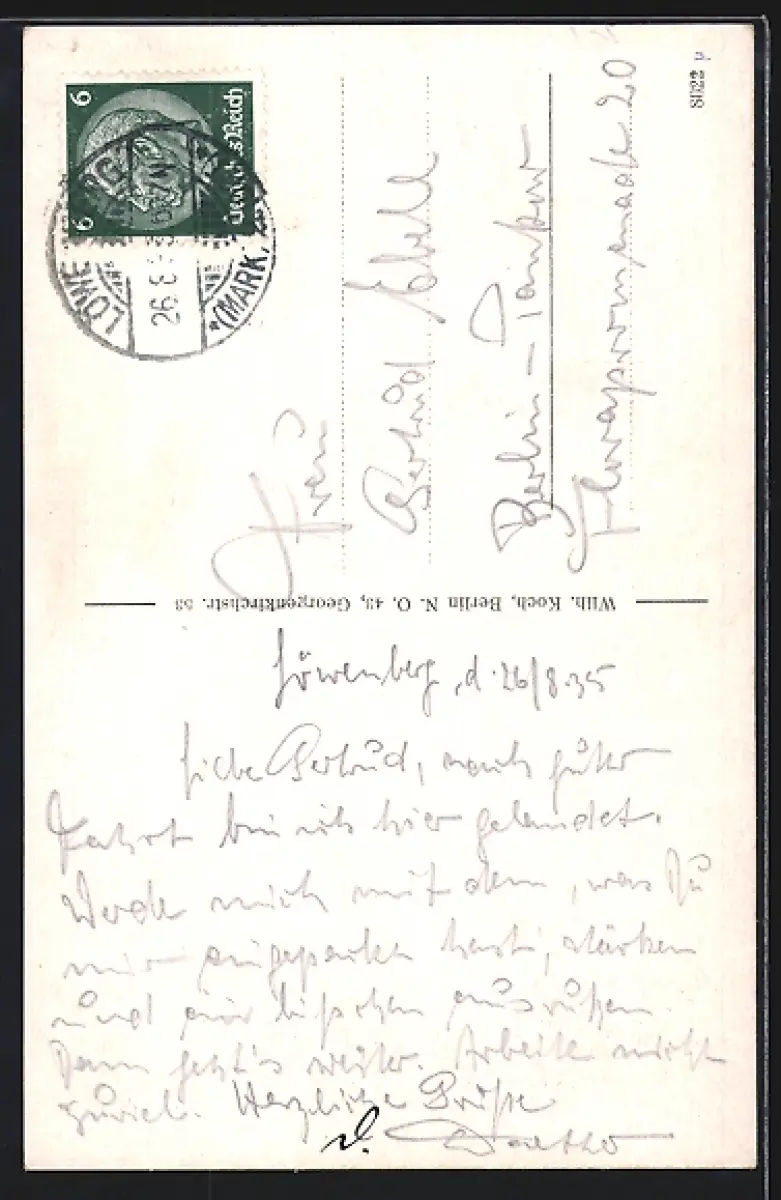 8022
6 6
Deutsches Reich
LÖWENBERG
(MARK)
26.8.
Frau
Gertrud Ebell
Berlin - Pankow
Florapromenade 20
Wilh. Koch, Berlin N. O. 43, Georgenkirchstr. 53
Löwenberg, d. 26/8.35
Liebe Gertrud, nach guter
Fahrt bin ich hier gelandet.
Werde mich mit dem, was Du
mir eingepackt hast, stärken
und ein bißchen ausruhen.
Dann geht's weiter. Arbeite nicht
zuviel. Herzliche Grüße
D.